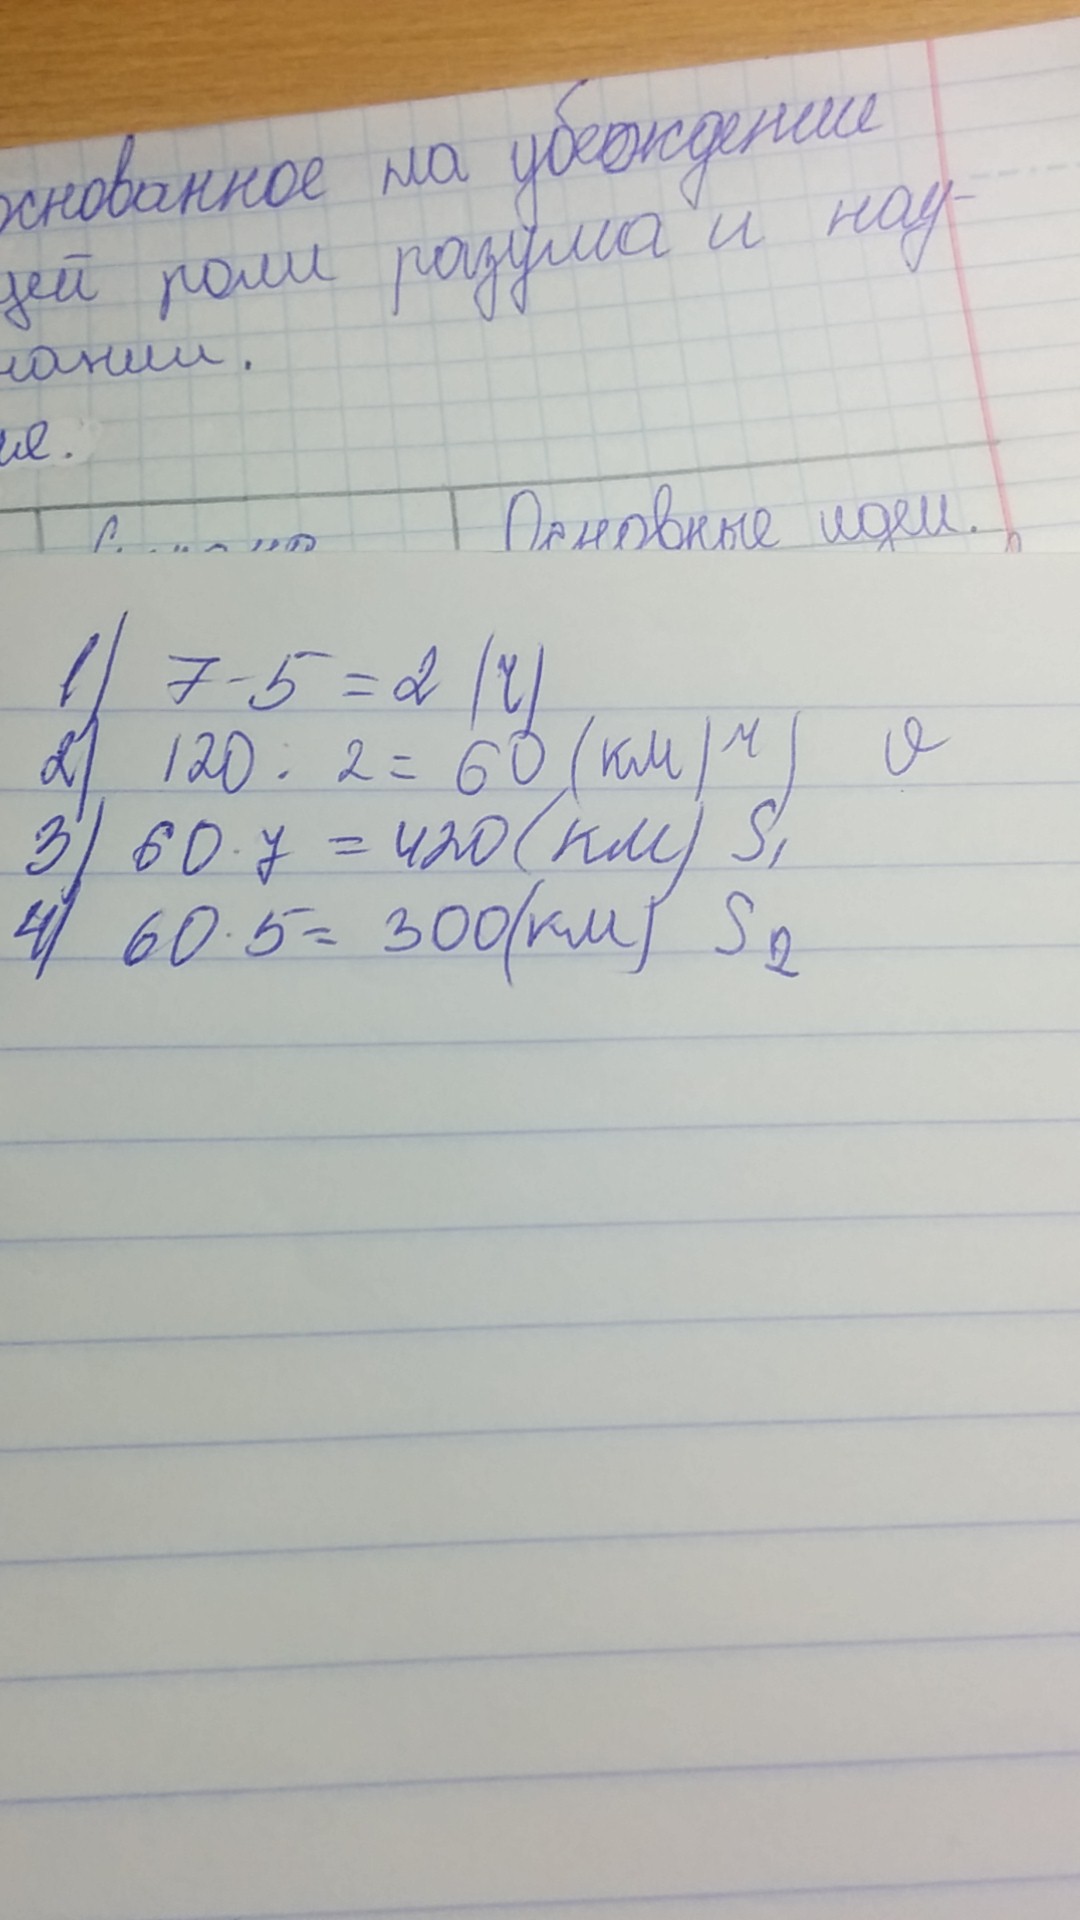 основанное на убеждении
щей роли разума и нау-
нании.
ия.
Основные идеи.
1) 7-5=2 (ч)
2) 120 : 2 = 60 (км/ч) v
3) 60·7 = 420 (км) S1
4) 60·5 = 300 (км) S2